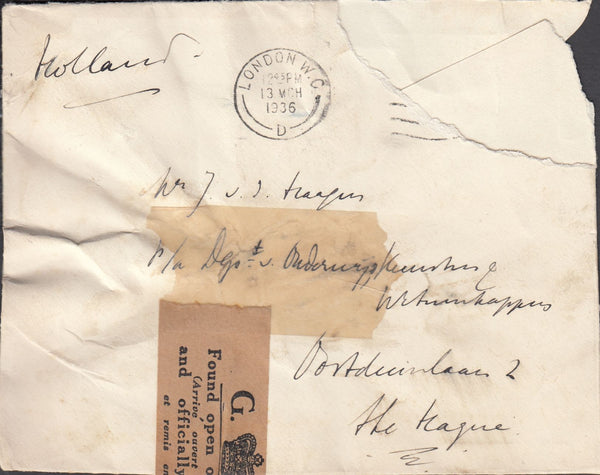 Holland
LONDON W.C.
12 45 PM
13 MCH
1936
D
Mr J. v. d. Haagen
p/a Dept v. Onderwijs Kunsten &
Wetenschappen
2
The Hague
G.
Found open o
(Arrivé ouvert
and officially
et remis en